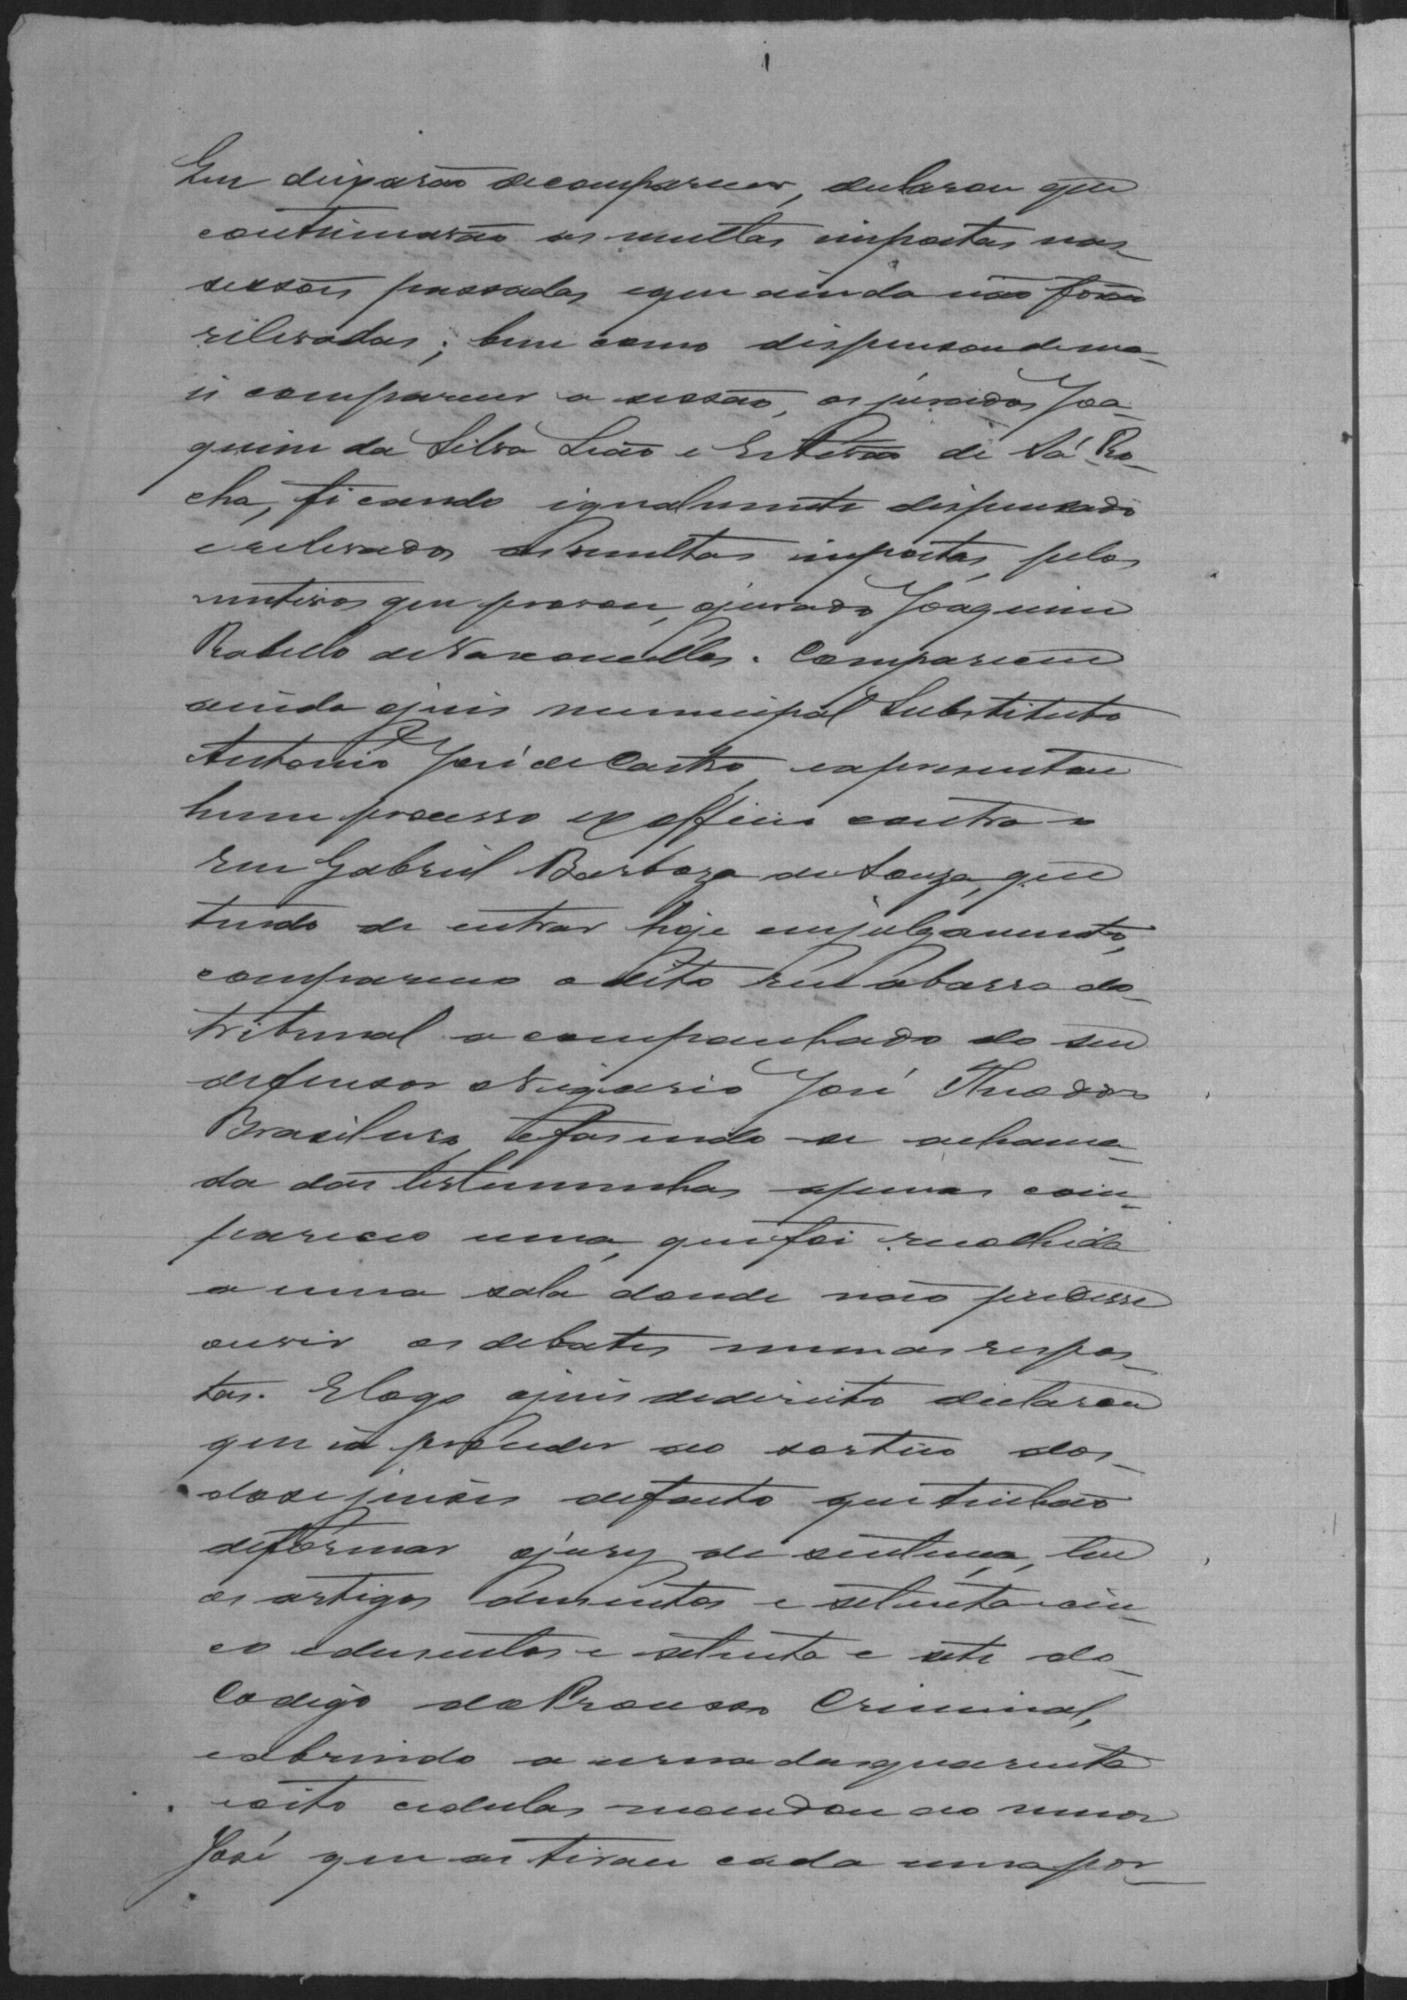 que deixarão decomparecer, declarou que
continuarão as multas impostas nas
sessões passadas eque ainda não forão
relevadas; bem como dispensou dema-
is comparecer a sessão, os jurados Joa-
quim da Silva Leão e Estevão de Sá Ro-
cha, ficando igualmente dispensado
erelevado as multas impostas, pelos
motivos que provou, ojurado Joaquim
Rabello deVasconcellos. Compareceu
ainda ojuis municipal Substituto
Antonio José de Castro, eapresentou
hum processo ex officio contra o
reu Gabriel Barboza de Souza, que
tendo de entrar hoje emjulgamento,
compareceo o dito reu abarra do
tribunal acompanhado do seu
defensor oVigario José Theodoro
Brasileiro, efasendo-se achama-
da das testemunhas apenas com-
pareceo uma, quefoi recolhida
a uma sala donde não podesse
ouvir os debates nemas respos-
tas. Elogo ojuis dedireito declarou
que ia proceder ao sorteio dos
dose juises defacto quetinhão
deformar ojury de sentença, leu
os artigos dusentos e setenta ecin-
co edusentos e setenta e sete do
Codigo doProcesso Criminal,
eabrindo a urna dasquarenta
eoito cedulas mandou ao menor
José que as tirou cada umapor